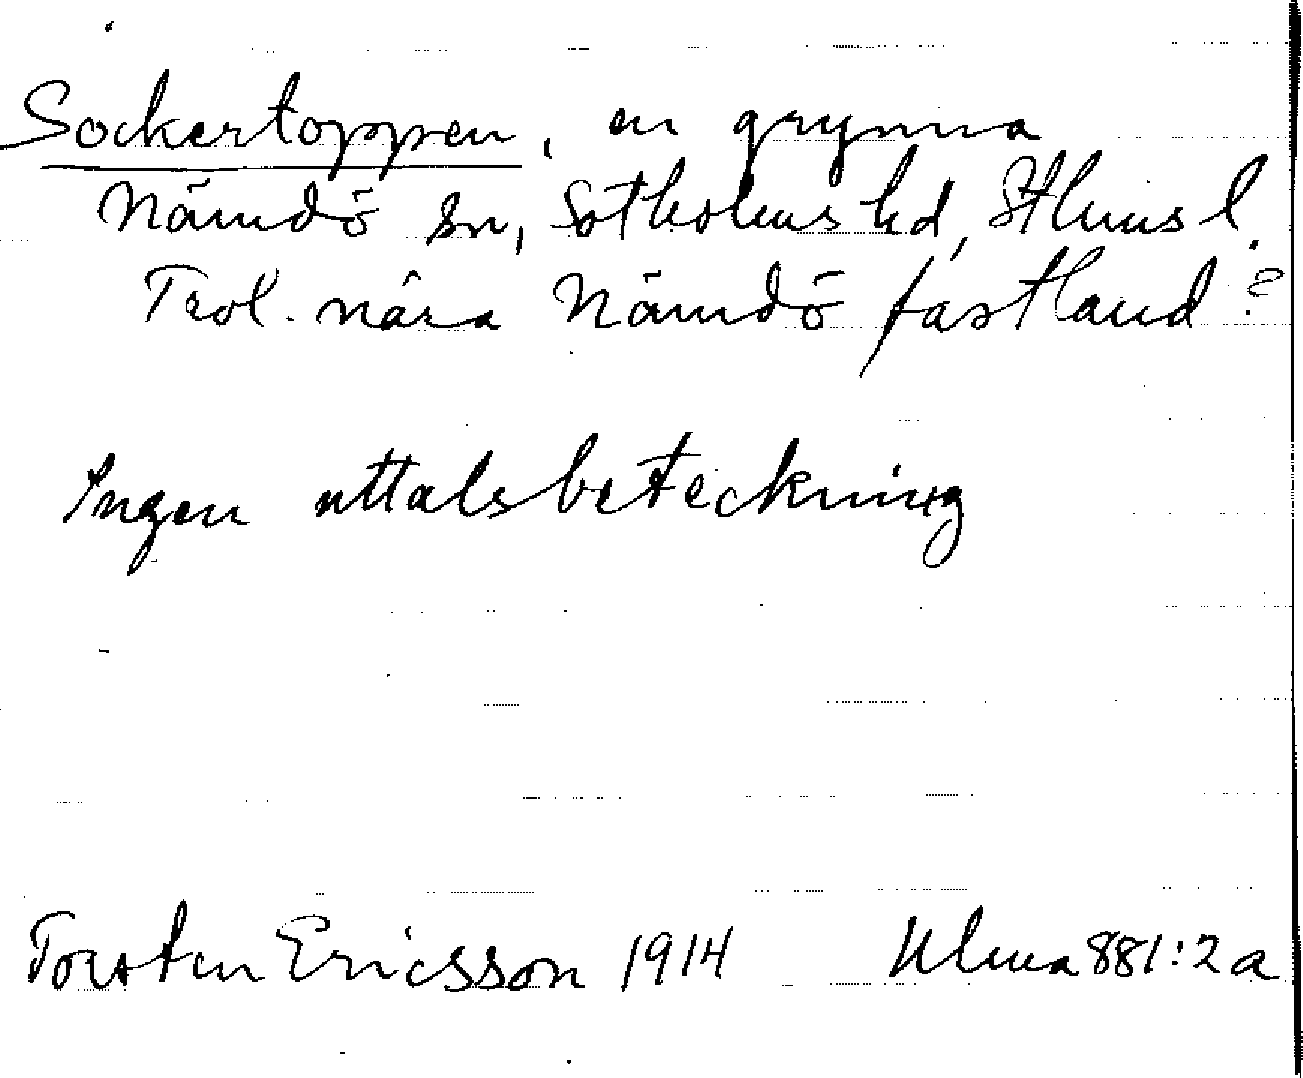 Sockertoppen, en grynna
Nämdö sn, Sotholms hd, Sthms l.
Trol. nära Nämdö fastland?
Ingen uttalsbeteckning
Torsten Ericsson 1914 Ulma 881:2a